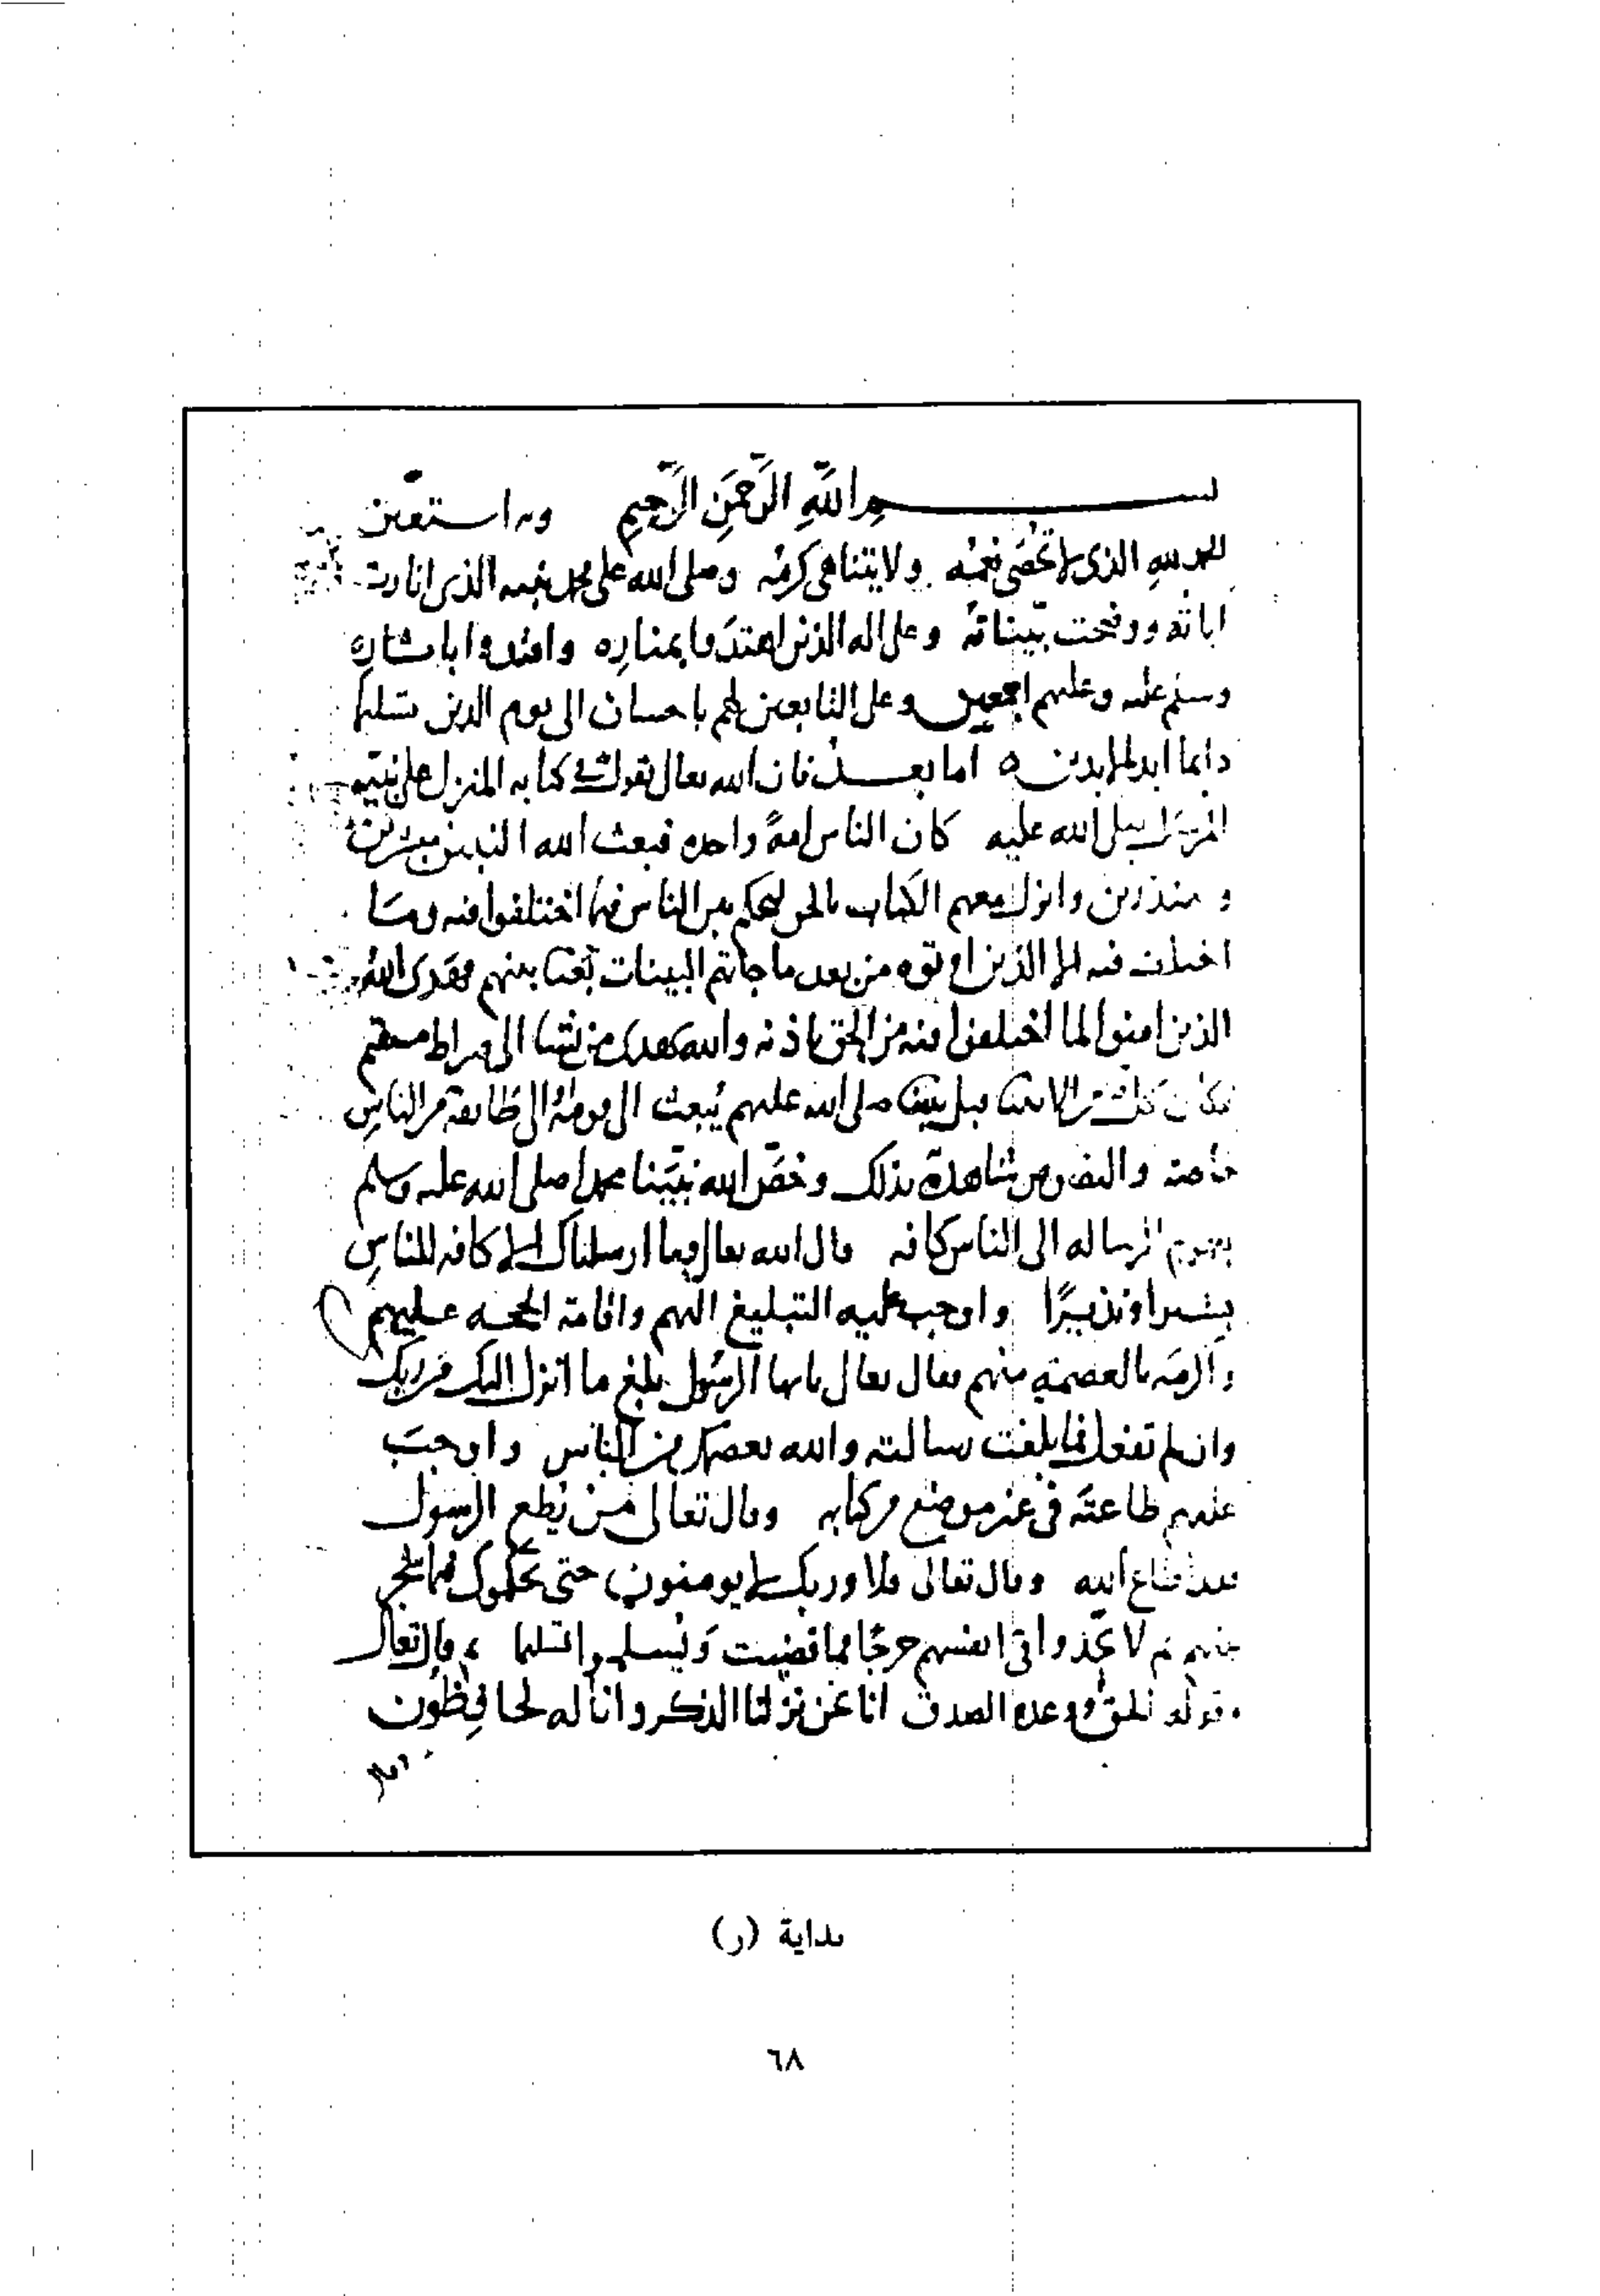 بسم الله الرَّحمَنِ الرَّحِيمِ وبه استعين
الحمد لله الذي لا تحصى نعمه ولا يتناهى كرمه وصلى الله على محمد نبيه الذي انارت
اياته ووضحت بيّناته وعلى اله الذين اهتدوا بمناره واقتدوا باثاره
وسلم عليه وعليهم اجمعين وعلى التابعين لهم باحسان الى يوم الدين تسليما
دايما ابد الابدين ه اما بعد فان الله تعالى يقول في كتابه المنزل على نبيه
المرسل صلى الله عليه كان الناس امةً واحده فبعث الله النبيين مبشرين
و منذرين وانزل معهم الكتاب بالحق ليحكم بين الناس فيما اختلفوا فيه وما
اختلف فيه الا الذين اوتوه من بعد ما جاتهم البينات بغيا بينهم فهَدى اللهُ
الذين امنوا لما اختلفوا فيه من الحق باذنه والله يهدي من يشا الى صراط مستقيم
فكان كل من الانبيا قبل نبينا صلى الله عليهم يُبعث الى قومه او الى طايفة من الناسِ
خاصة والنصوص شاهدة بذلك وخصّ الله نبيّنا محمدا صلى الله عليه وسلم
بعموم الرساله الى الناس كافه قال الله تعالى وما ارسلناك الا كافه للناسِ
بشيرا ونذيرًا واوجب عليه التبليغ اليهم واقامة الحجه عليهم
والزمه بالعصمة منهم فقال تعالى يايها الرسُول بلغ ما انزل اليك من ربك
وان لم تفعل فما بلغت رسالته والله يعصمك من الناس واوجبَ
عليهم طاعته في غير موضع من كتابه وقال تعالى من يُطع الرسول
فقد اطاع الله وقال تعالى فلا وربك لا يومنون حتى يحكموك فيما شجر
بينهم ثم لا يجدوا في انفسهم حرجًا مما قضيت وَيُسلموا تسليما ، وقال تعالى
وقوله الحق ووعده الصدق انا نحن نزلنا الذكر وانا له لحافِظُون
بداية (ر)
٦٨